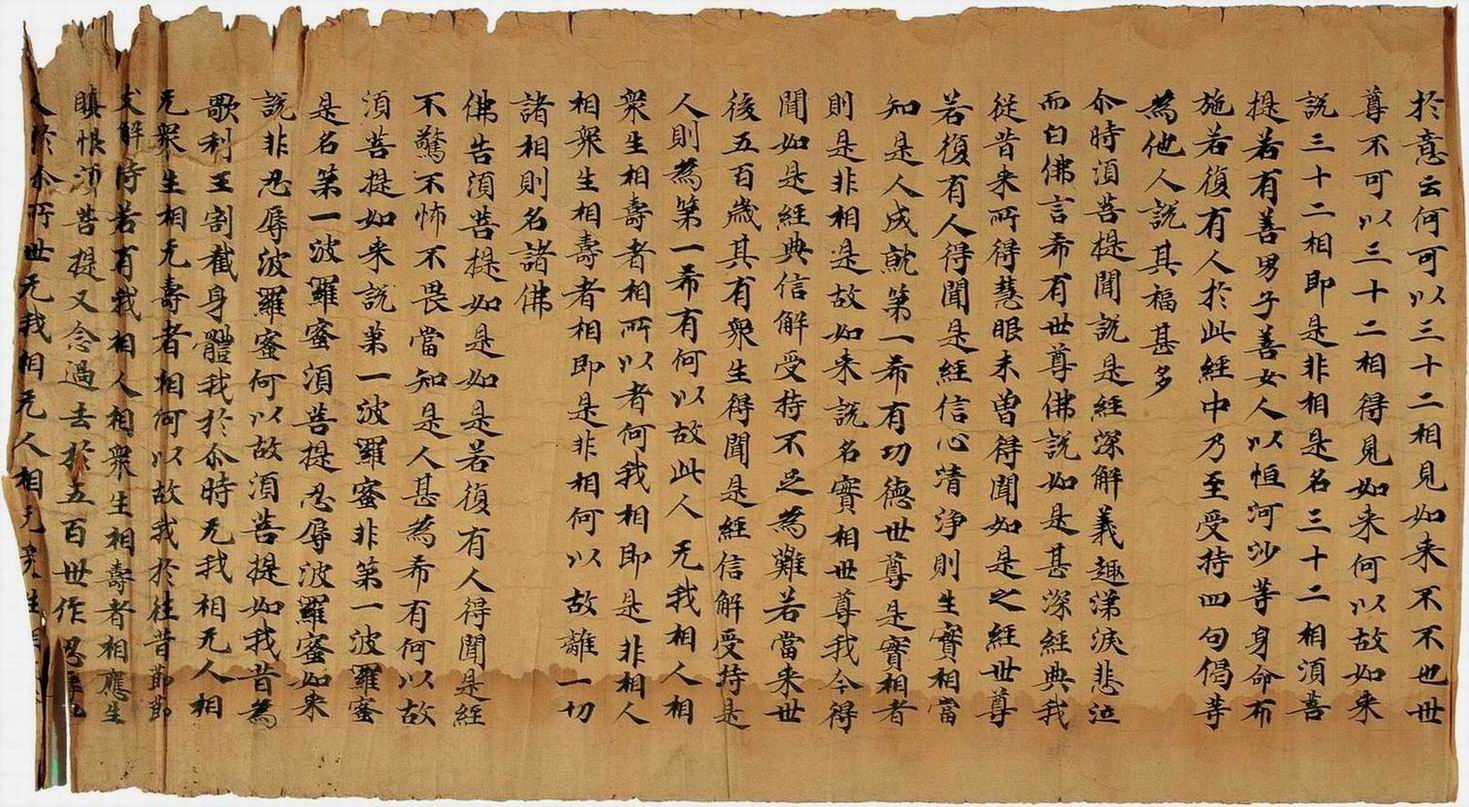 於意云何可以三十二相見如来不不也世
尊不可以三十二相得見如来何以故如来
説三十二相即是非相是名三十二相須菩
提若有善男子善女人以恒河沙等身命布
施若復有人於此經中乃至受持四句偈等
為他人説其福甚多
尒時須菩提聞説是經深解義趣涕淚悲泣
而白佛言希有世尊佛説如是甚深經典我
従昔来所得慧眼未曽得聞如是之經世尊
若復有人得聞是經信心清淨則生實相當
知是人成就第一希有功德世尊是實相者
則是非相是故如来説名實相世尊我今得
聞如是經典信解受持不足為難若當来世
後五百歳其有衆生得聞是經信解受持是
人則為第一希有何以故此人无我相人相
衆生相壽者相所以者何我相即是非相人
相衆生相壽者相即是非相何以故離一切
諸相則名諸佛
佛告須菩提如是如是若復有人得聞是經
不驚不怖不畏當知是人甚為希有何以故
須菩提如来説第一波羅蜜非第一波羅蜜
是名第一波羅蜜須菩提忍辱波羅蜜如来
説非忍辱波羅蜜何以故須菩提如我昔為
歌利王割截身體我於尒時无我相无人相
无衆生相无壽者相何以故我於往昔節節
支解時若有我相人相衆生相壽者相應生
瞋恨須菩提又念過去於五百世作忍辱
人於尒所世无我相无人相无衆生相